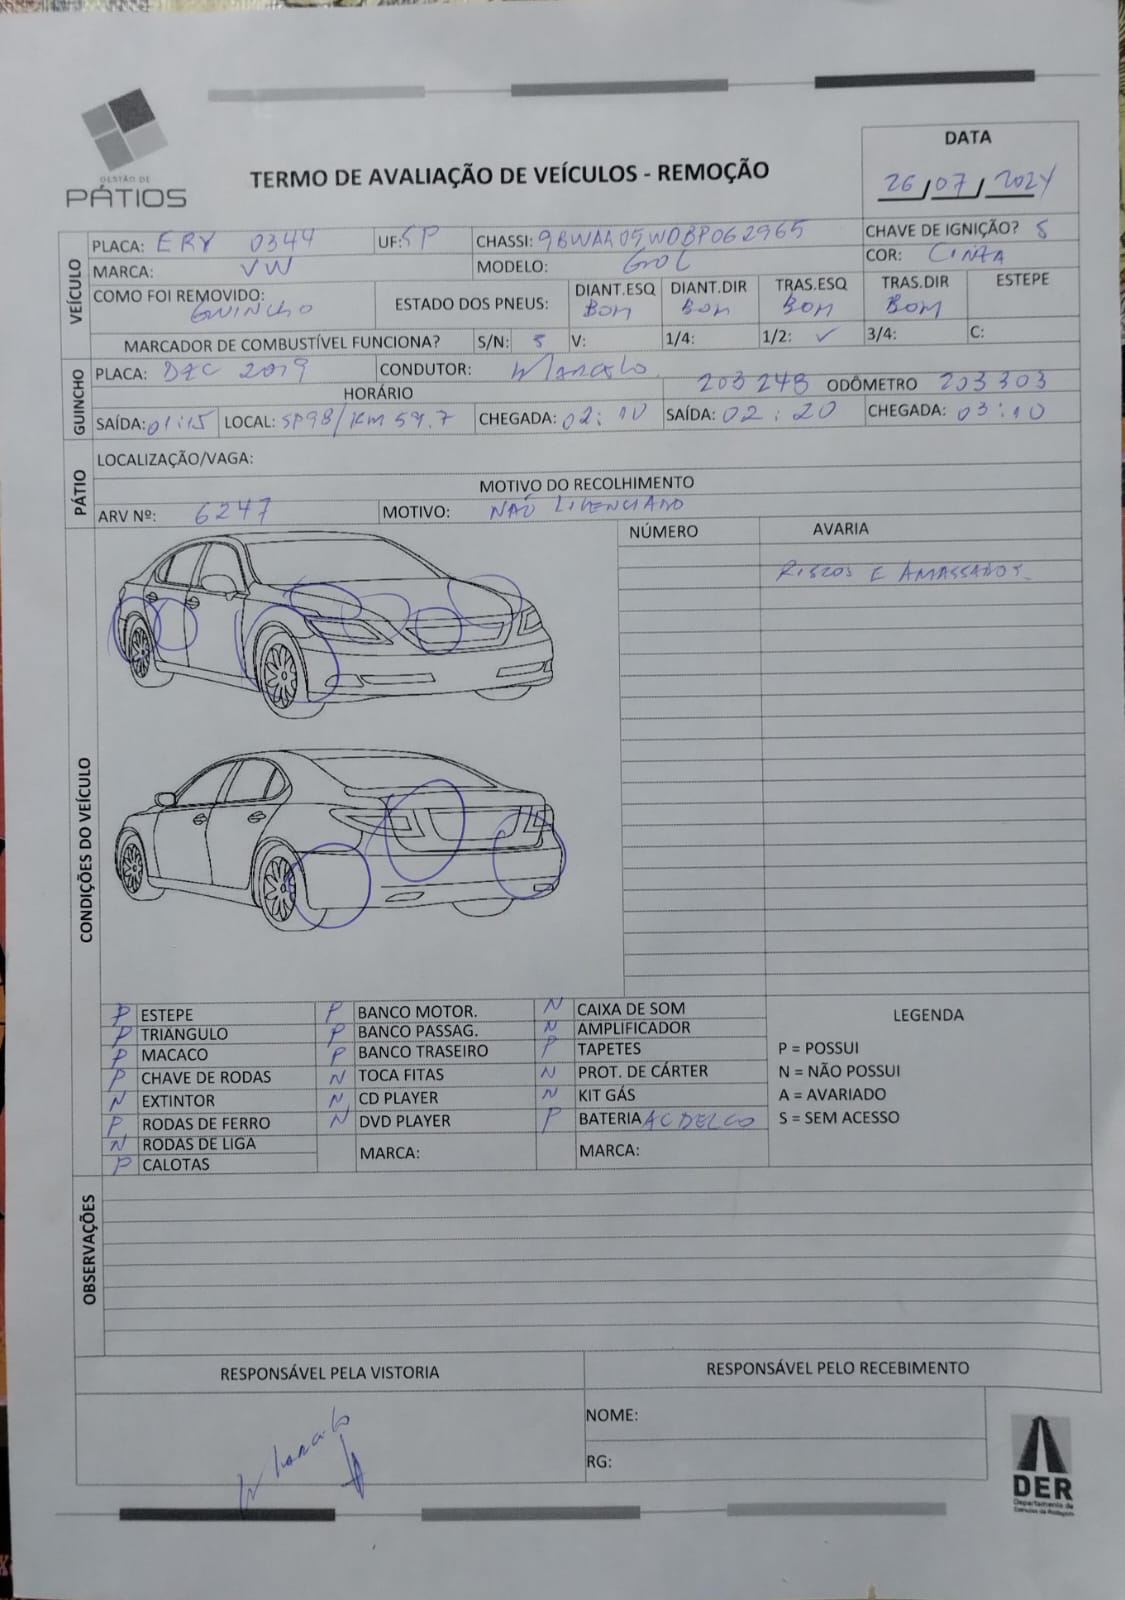 GESTÃO DE
PÁTIOS
TERMO DE AVALIAÇÃO DE VEÍCULOS - REMOÇÃO
DATA
26/07/2024
VEÍCULO
PLACA: ERY 0344 UF: SP CHASSI: 9BWAA05W0BP062965 CHAVE DE IGNIÇÃO? S
MARCA: VW MODELO: GOL COR: CINZA
COMO FOI REMOVIDO: GUINCHO ESTADO DOS PNEUS: DIANT.ESQ BOM DIANT.DIR BOM TRAS.ESQ BOM TRAS.DIR BOM ESTEPE
MARCADOR DE COMBUSTÍVEL FUNCIONA? S/N: S V: 1/4: 1/2: ✓ 3/4: C:
GUINCHO
PLACA: 2019 CONDUTOR: Marcelo 203248 ODÔMETRO 203303
HORÁRIO
SAÍDA: 01:15 LOCAL: SP98/KM 59.7 CHEGADA: 02:10 SAÍDA: 02:20 CHEGADA: 03:10
PÁTIO
LOCALIZAÇÃO/VAGA:
MOTIVO DO RECOLHIMENTO
ARV Nº: 6247 MOTIVO: NÃO LICENCIADO
CONDIÇÕES DO VEÍCULO
NÚMERO AVARIA
RISCOS E AMASSADOS.
P ESTEPE P BANCO MOTOR. N CAIXA DE SOM LEGENDA
P TRIANGULO P BANCO PASSAG. N AMPLIFICADOR
P MACACO P BANCO TRASEIRO P TAPETES P = POSSUI
P CHAVE DE RODAS N TOCA FITAS N PROT. DE CÁRTER N = NÃO POSSUI
N EXTINTOR N CD PLAYER N KIT GÁS A = AVARIADO
P RODAS DE FERRO N DVD PLAYER P BATERIA ACDELCO S = SEM ACESSO
N RODAS DE LIGA MARCA: MARCA:
P CALOTAS
OBSERVAÇÕES
RESPONSÁVEL PELA VISTORIA RESPONSÁVEL PELO RECEBIMENTO
Marcelo
NOME:
RG:
DER
Departamento de
Estradas de Rodagem